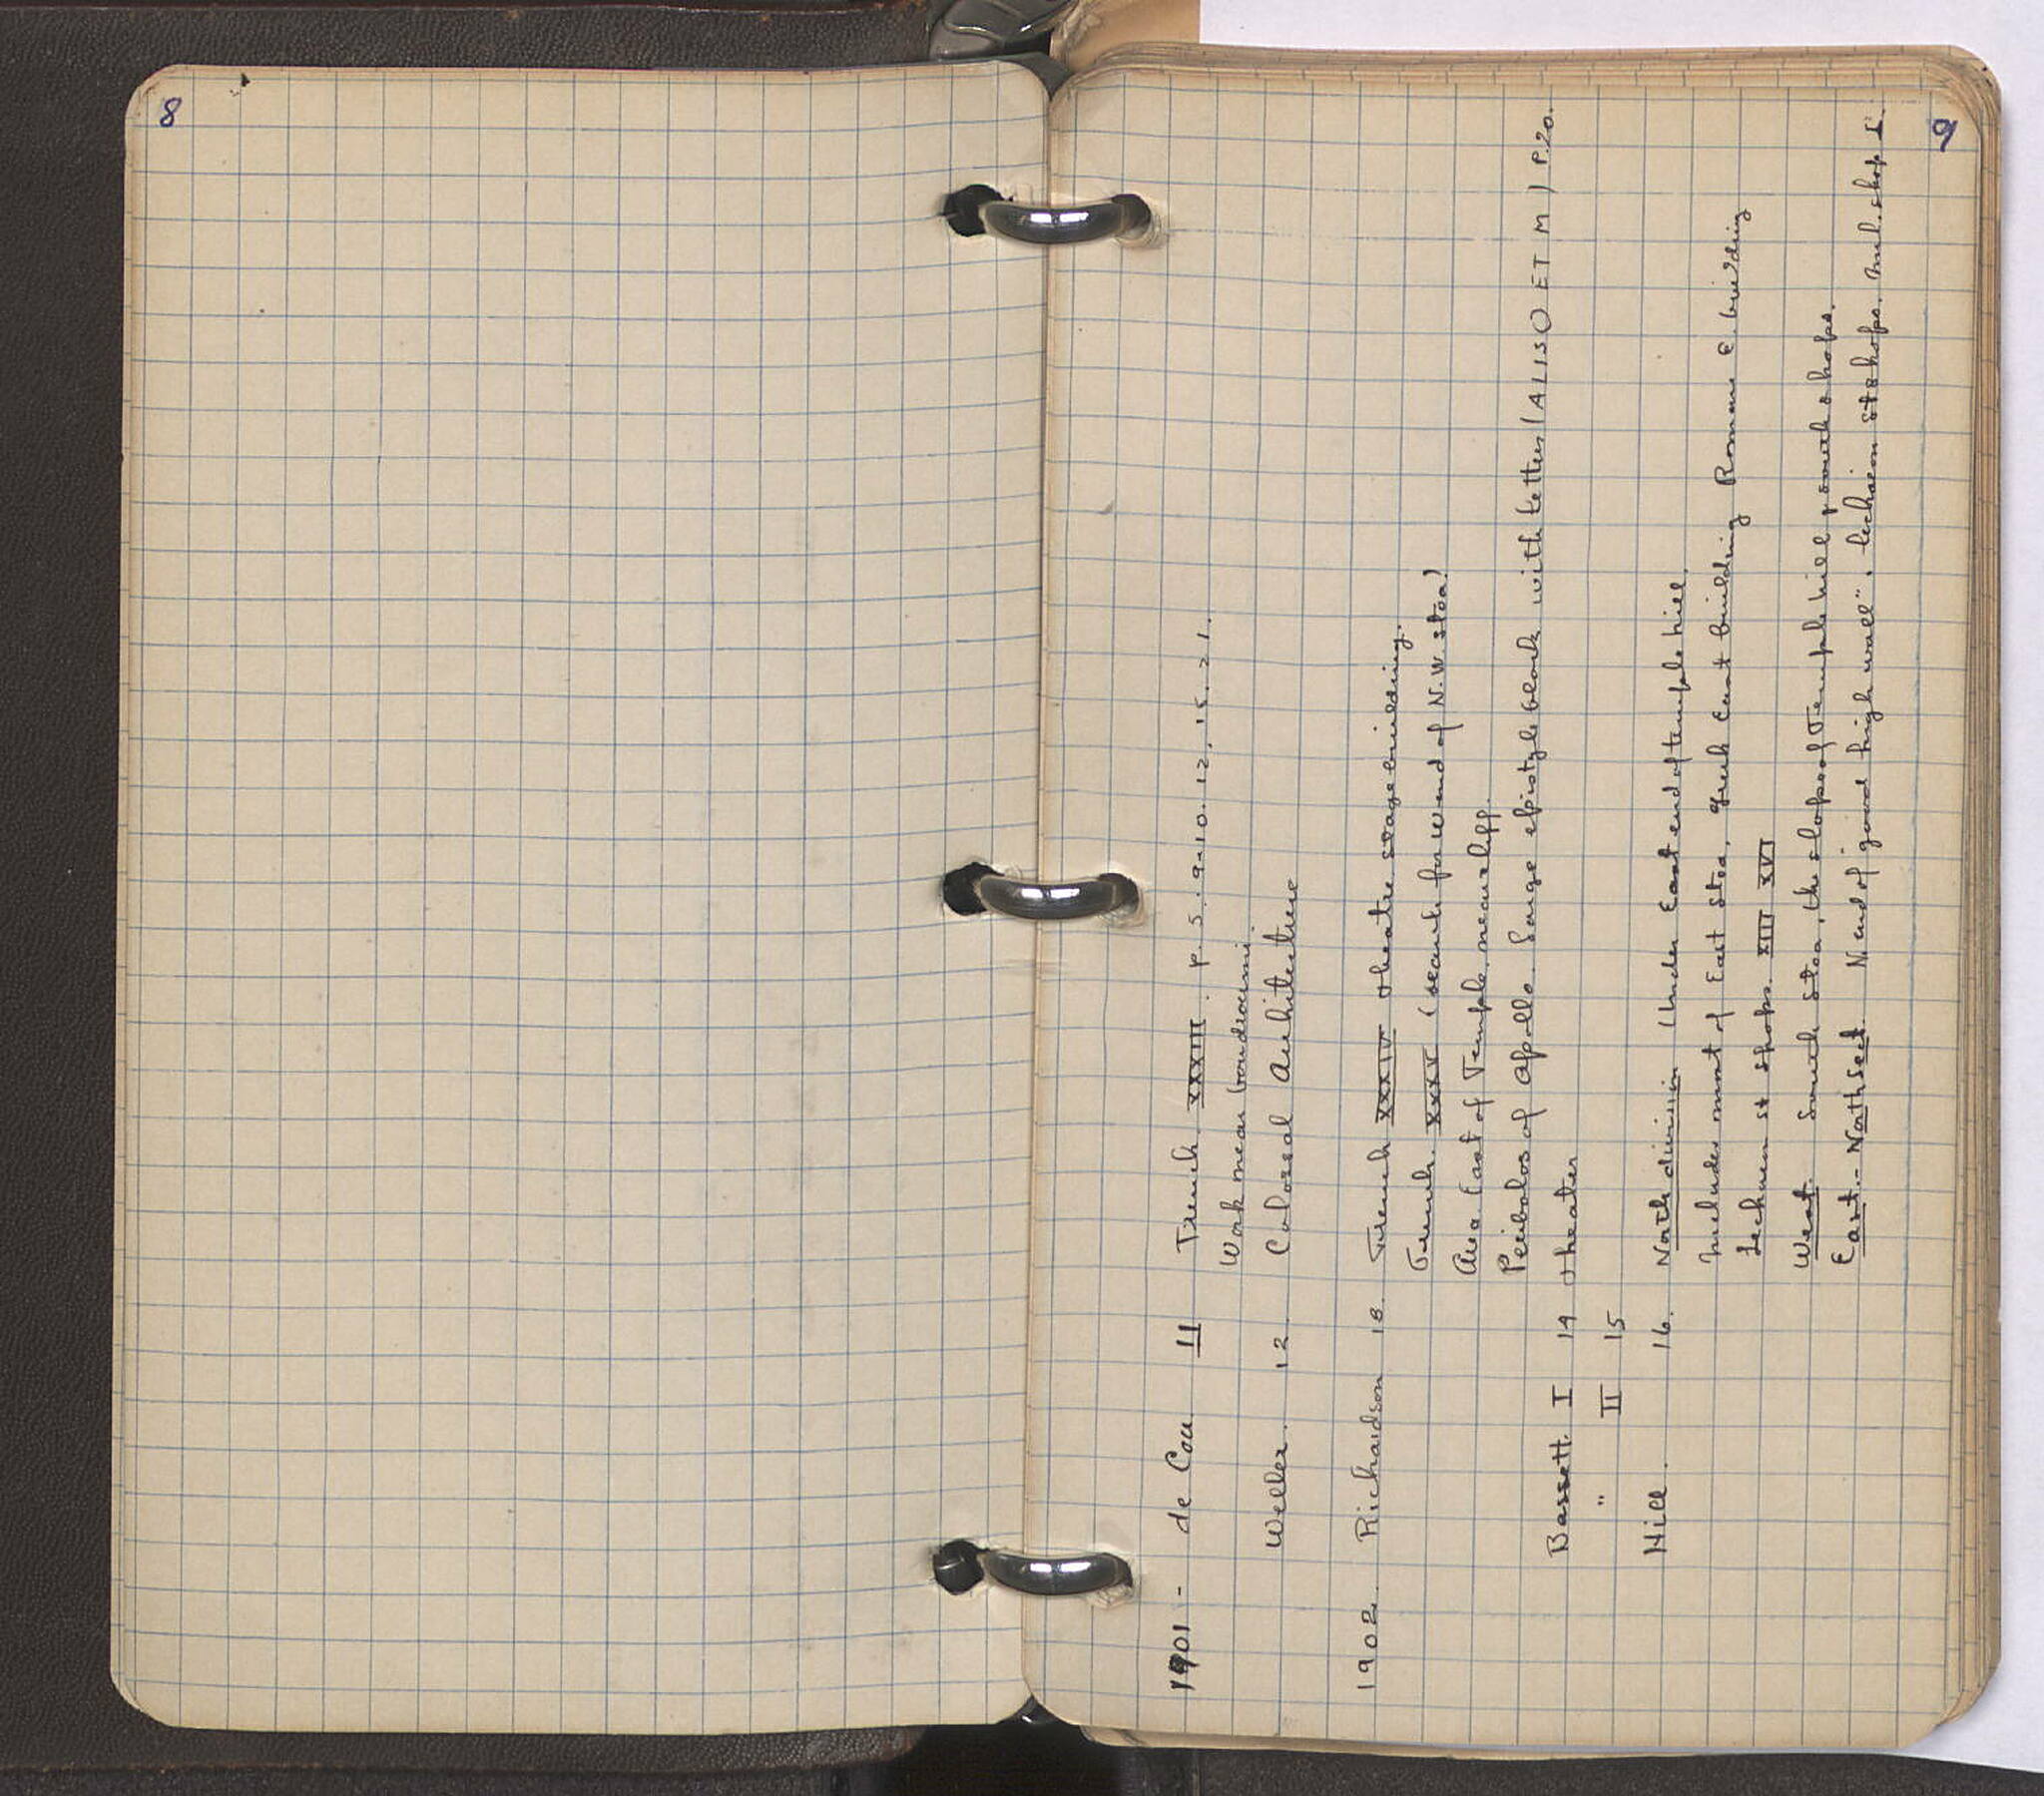 8
9
1901 - de Cou 11 Trench XXXIII. p. 5. 9-10. 12, 15. 21.
Work near boudroumi.
Weller. 12 Colossal Architecture
1902. Richardson 18. Trench XXXIV theatre stage building.
Trench XXXV (search for W end of N.W. stoa)
Area East of Temple, near cliff.
Peribolos of Apollo. Large epistyle block with letters (ALISO ET M) P. 20.
Bassett. I 14 theater
" II 15
Hill. 16. North division (Under East end of temple hill.
Includes most of East Stoa, Greek East building Roman E. building
Lechaeum st shops. XIII XVI
West. South Stoa, the slope of Temple hill, south shops.
East. - North Sect. N end of "good high wall". Lechaion st shops. incl. shop I.